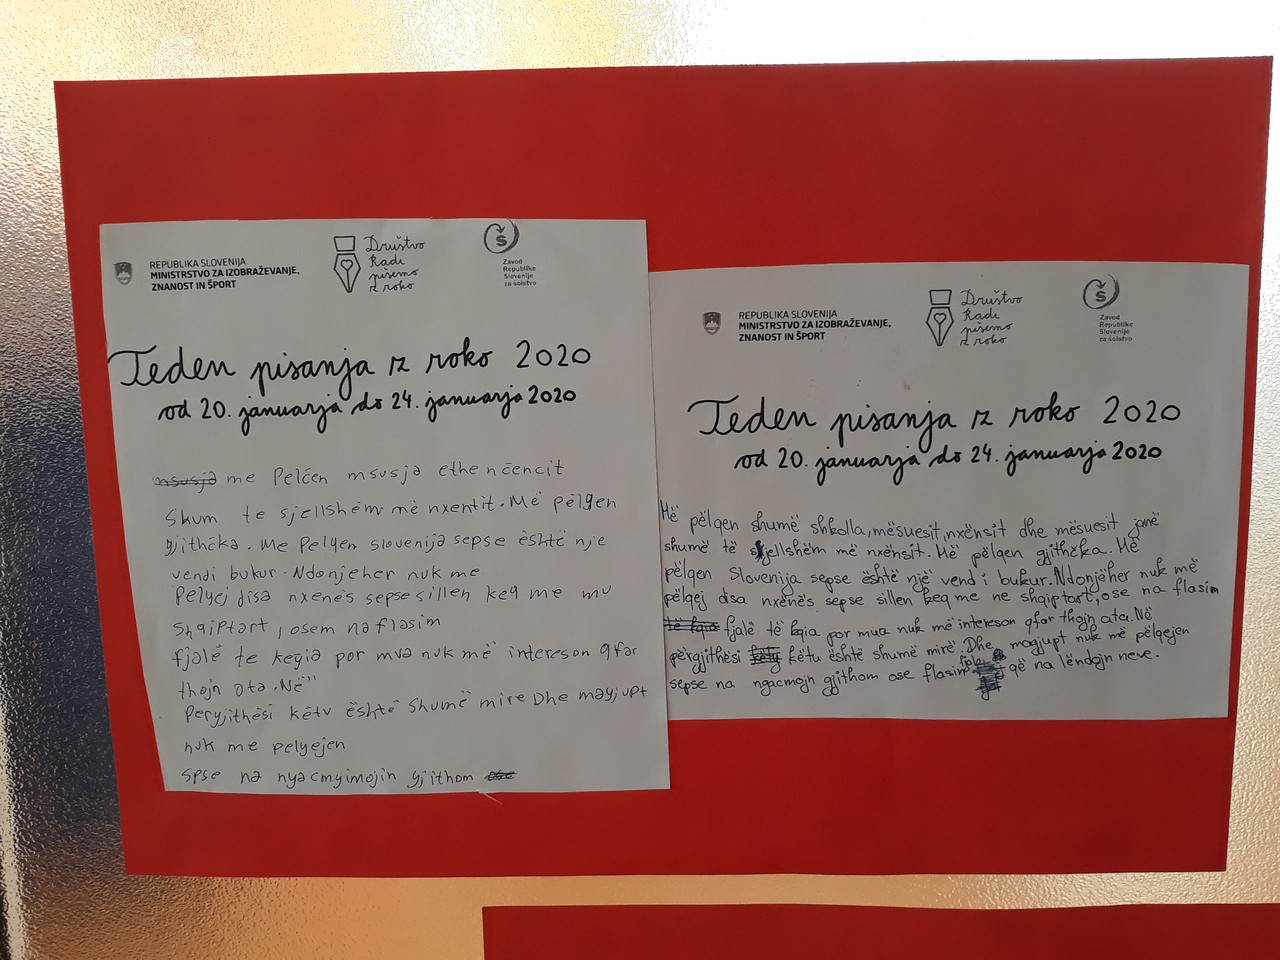 REPUBLIKA SLOVENIJA
MINISTRSTVO ZA IZOBRAŽEVANJE,
ZNANOST IN ŠPORT
Društvo
Radi
pišemo
z roko
Zavod
Republike
Slovenije
za šolstvo
Teden pisanja z roko 2020
od 20. januarja do 24. januarja 2020
msusja me Pelčen msusja ethe nčencit
Skum te sjellshëm më nxentit. Më pëlgen
gjithçka. Me Pelgen slovenija sepse është nje
vendi bukur. Ndonjeher nuk me
pelyej disa nxenës sepse sillen keq me mu
shqiptart, osem na flasim
fjalé te keqia por mua nuk më intereson qfar
thojn ata. Në
Peryjithësi këtu është Shumë mire Dhe mayjupt
nuk me pelyejen
spse na nyacmyimojin gjithom ose
REPUBLIKA SLOVENIJA
MINISTRSTVO ZA IZOBRAŽEVANJE,
ZNANOST IN ŠPORT
Društvo
Radi
pišemo
z roko
Zavod
Republike
Slovenije
za šolstvo
Teden pisanja z roko 2020
od 20. januarja do 24. januarja 2020
Më pëlqen shumë shkolla, mësuesit, nxënsit dhe mësuesit janë
shumë të sjellshëm më nxënsit. Më pëlqen gjithçka. Më
pëlqen Slovenija sepse është një vend i bukur. Ndonjëher nuk më
pëlqej disa nxënës sepse sillen keq me ne shqiptart, ose na flasim
të kqia fjalë të kqia por mua nuk më intereson qfar thojn ata. Në
përgjithësi këtu është shumë mirë. Dhe magjupt nuk më pëlqejen
sepse na ngacmojn gjithom ose flasim fjale që na lëndojn neve.